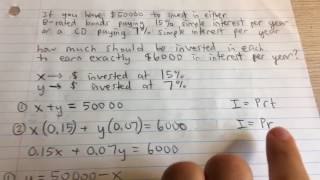 If you have $50000 to invest in either
B-rated bonds paying 15% simple interest per year
or a CD paying 7% simple interest per year
how much should be invested in each
to earn exactly $6000 in interest per year?
x → $ invested at 15%
y → $ invested at 7%
① x + y = 50000
I = Prt
② x(0.15) + y(0.07) = 6000
I = Pr
0.15x + 0.07y = 6000
① y = 50000 - x